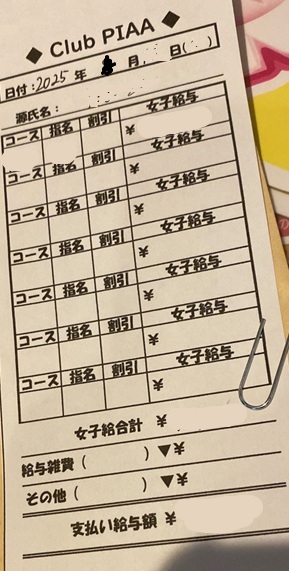 ◆ Club PIAA ◆
日付:2025年 月 日( )
源氏名:
コース 指名 割引 女子給与
¥
コース 指名 割引 女子給与
¥
コース 指名 割引 女子給与
¥
コース 指名 割引 女子給与
¥
コース 指名 割引 女子給与
¥
コース 指名 割引 女子給与
¥
コース 指名 割引 女子給与
¥
女子給合計 ¥
給与雑費( )▼¥
その他( )▼¥
支払い給与額 ¥